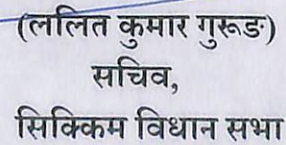 (ललित कुमार गुरूङ)
सचिव,
सिक्किम विधान सभा